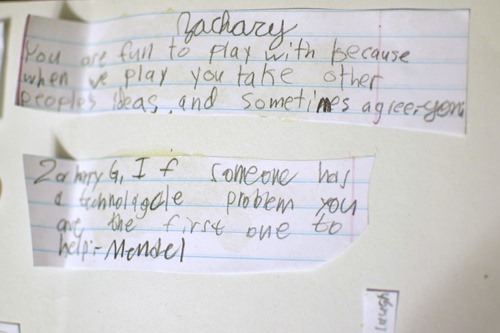 Zachary
You are fun to play with because
when we play you take other
peoples ideas, and sometimes agree,-yoni
Zachary G, If someone has
a technolagcle problem you
are the first one to
help:-Mendel